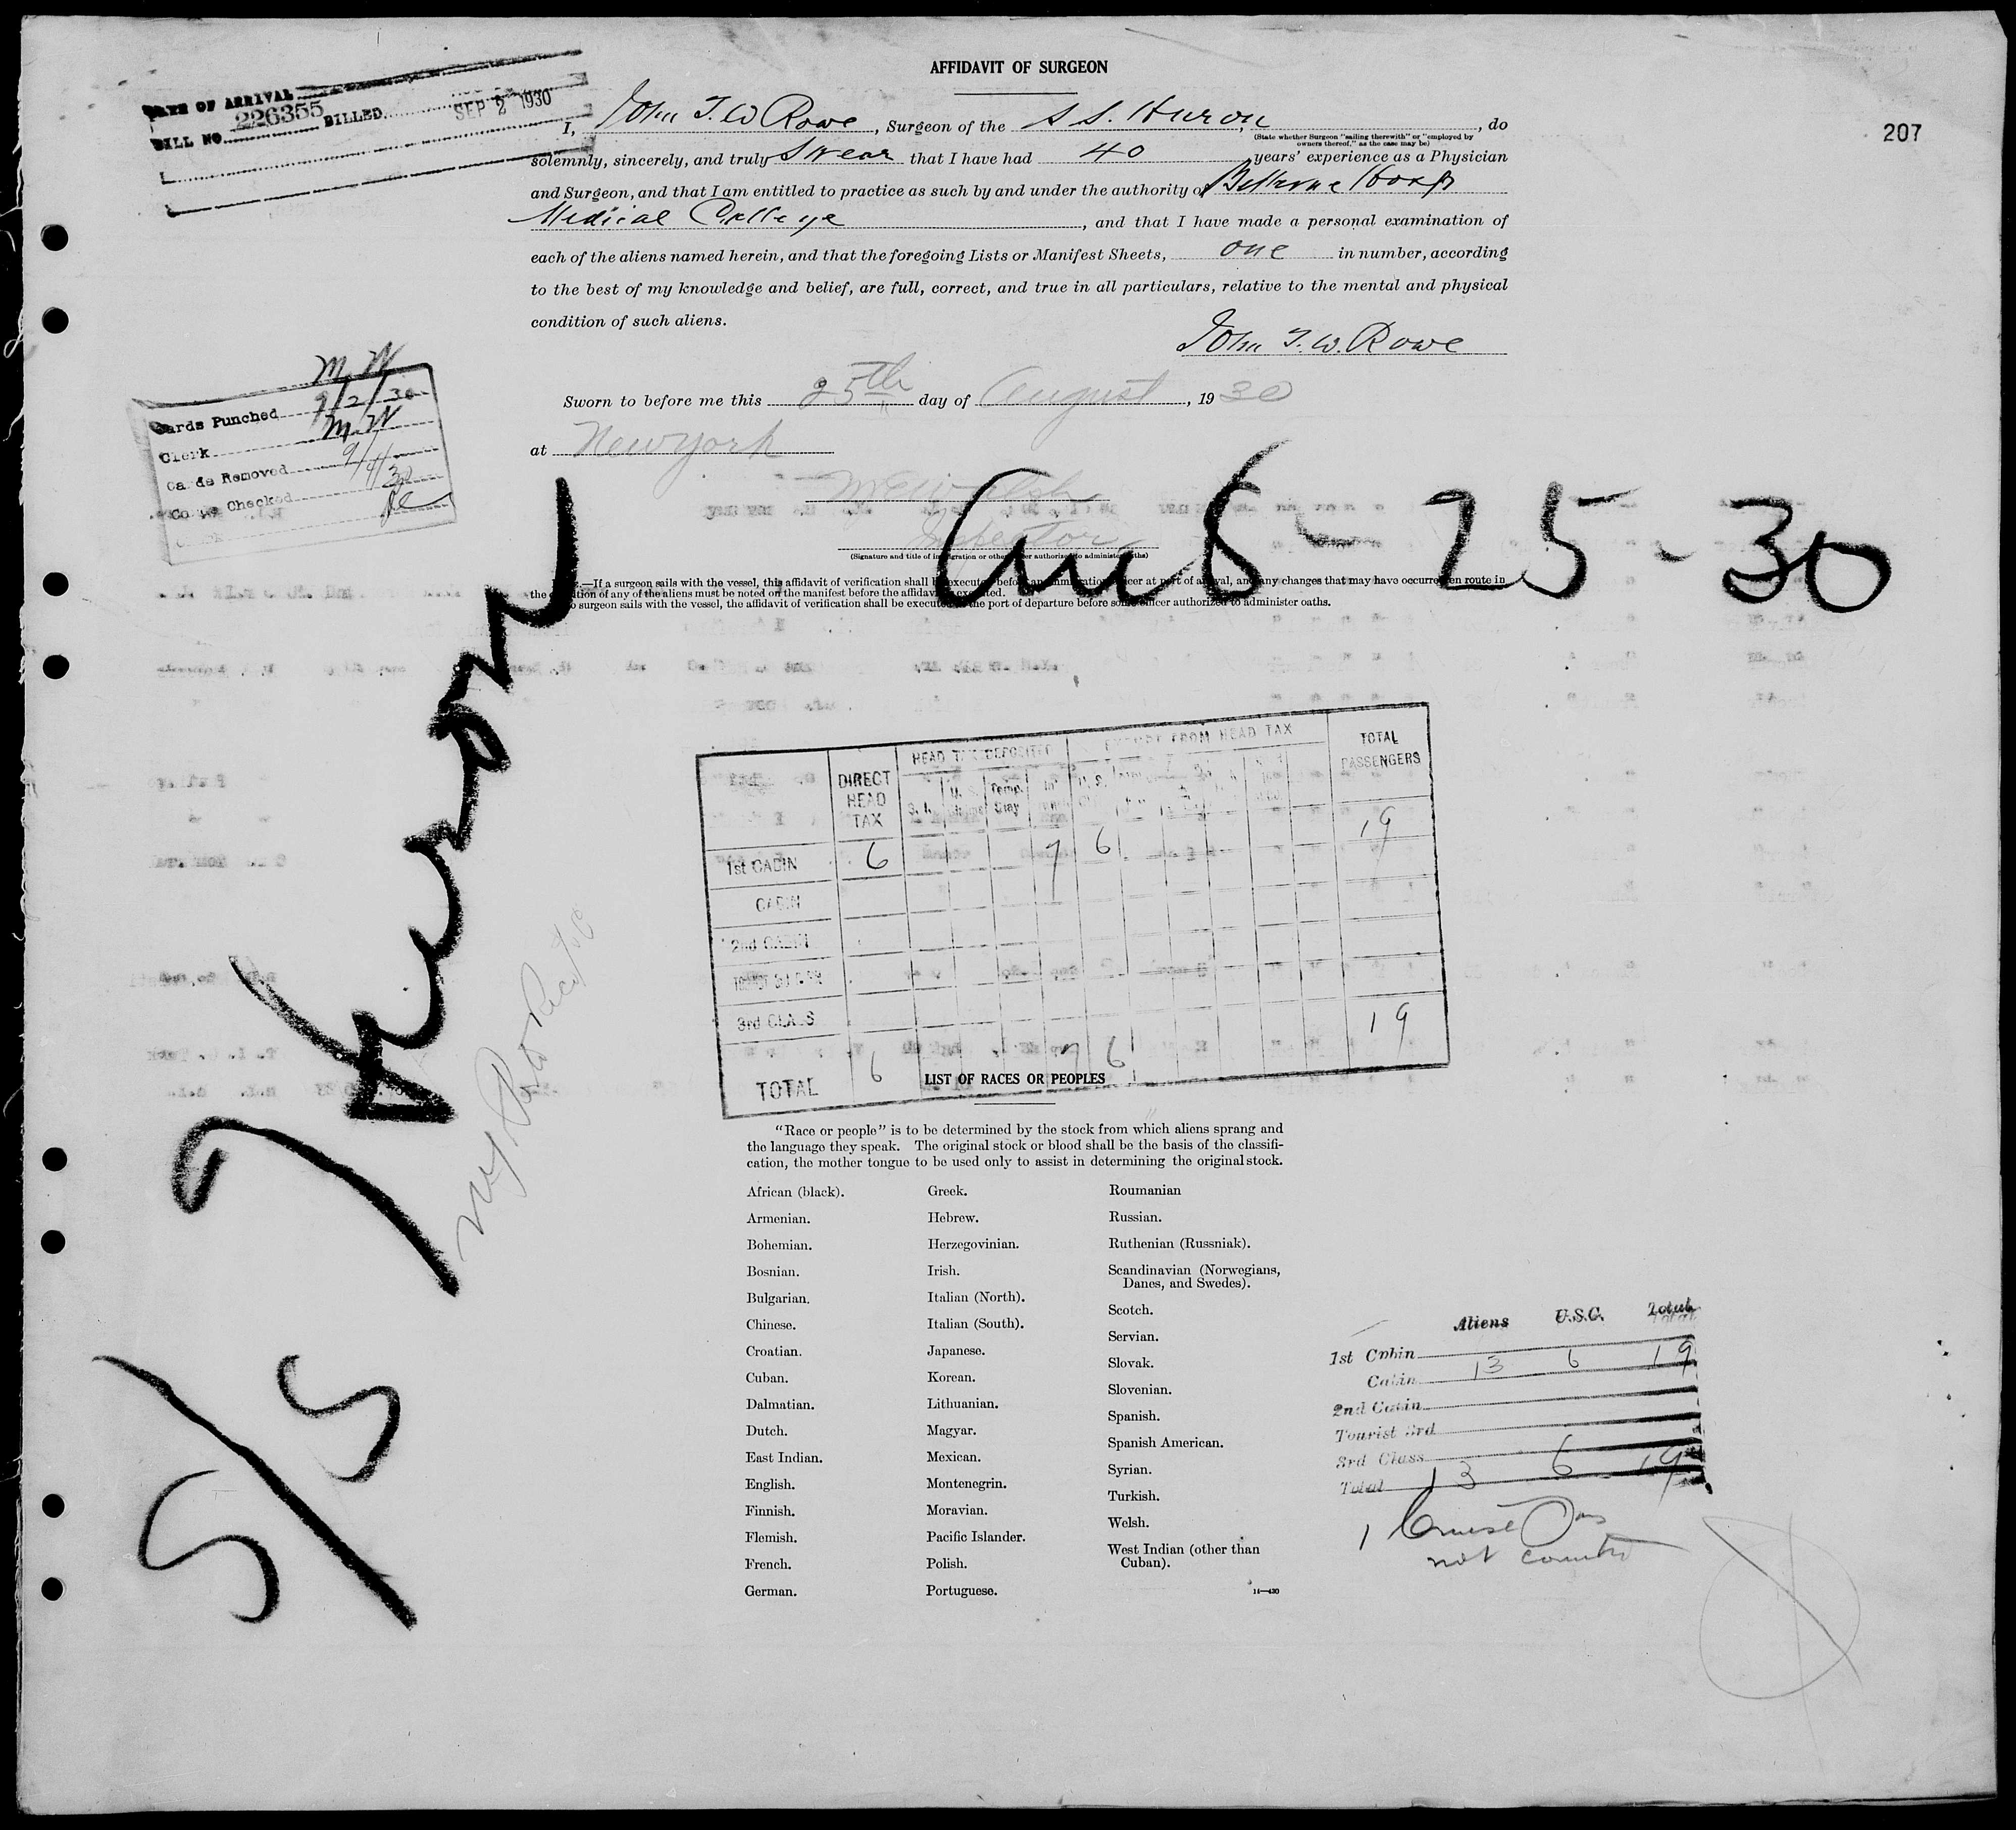 AFFIDAVIT OF SURGEON
207
DATE OF ARRIVAL
BILL NO. 226355 BILLED SEP 2 1930
I, John T. W Rowe, Surgeon of the S S. Huron, , do
(State whether Surgeon "sailing therewith" or "employed by
owners thereof," as the case may be)
solemnly, sincerely, and truly Swear that I have had 40 years' experience as a Physician
and Surgeon, and that I am entitled to practice as such by and under the authority of Bellevue Hosp
Medical College, and that I have made a personal examination of
each of the aliens named herein, and that the foregoing Lists or Manifest Sheets, one in number, according
to the best of my knowledge and belief, are full, correct, and true in all particulars, relative to the mental and physical
condition of such aliens.
John T. W. Rowe
Sworn to before me this 25th day of August, 1930
at New York
Inspector
(Signature and title of immigration or other officer authorized to administer oaths)
M.W
Cards Punched 9/2/30
Clerk M.W
Cards Removed 9/4/30
Checked
Aug - 25 - 30
.—If a surgeon sails with the vessel, this affidavit of verification shall be executed before an immigration officer at port of arrival, and any changes that may have occurred en route in
the condition of any of the aliens must be noted on the manifest before the affidavit is executed.
surgeon sails with the vessel, the affidavit of verification shall be executed at the port of departure before some officer authorized to administer oaths.
S/S Huron
DIRECT HEAD TAX HEAD TAX DEPOSITED EXEMPT FROM HEAD TAX TOTAL PASSENGERS
S. I. U. S. Temp. Stay In U. S.
1st CABIN 6 7 6 19
CABIN
2nd CABIN
3rd CLASS
TOTAL 6 7 6 19
LIST OF RACES OR PEOPLES
"Race or people" is to be determined by the stock from which aliens sprang and
the language they speak. The original stock or blood shall be the basis of the classifi-
cation, the mother tongue to be used only to assist in determining the original stock.
African (black).
Armenian.
Bohemian.
Bosnian.
Bulgarian.
Chinese.
Croatian.
Cuban.
Dalmatian.
Dutch.
East Indian.
English.
Finnish.
Flemish.
French.
German.
Greek.
Hebrew.
Herzegovinian.
Irish.
Italian (North).
Italian (South).
Japanese.
Korean.
Lithuanian.
Magyar.
Mexican.
Montenegrin.
Moravian.
Pacific Islander.
Polish.
Portuguese.
Roumanian
Russian.
Ruthenian (Russniak).
Scandinavian (Norwegians,
Danes, and Swedes).
Scotch.
Servian.
Slovak.
Slovenian.
Spanish.
Spanish American.
Syrian.
Turkish.
Welsh.
West Indian (other than
Cuban).
14—430
Aliens U.S.C. Total
1st Cabin 13 6 19
Cabin
2nd Cabin
Tourist 3rd
3rd Class
Total 13 6 19
1 Cruise Pas
not counted